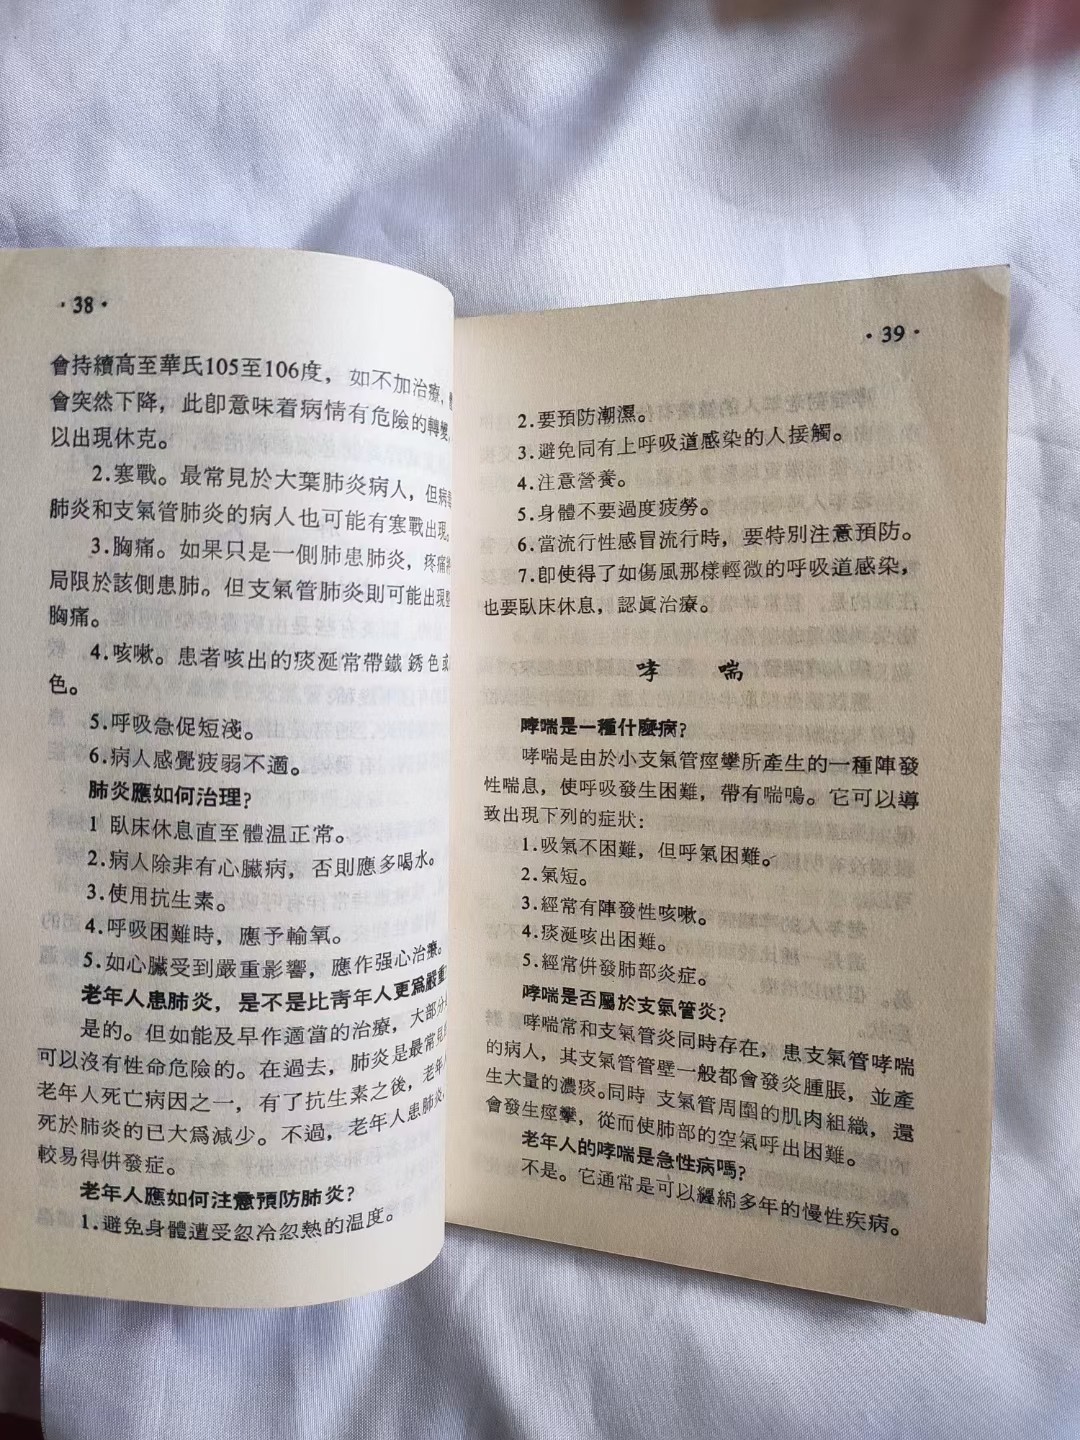 ·38·
會持續高至華氏105至106度，如不加治療，
會突然下降，此卽意味着病情有危險的轉變，
以出現休克。
2.寒戰。最常見於大葉肺炎病人，但病
肺炎和支氣管肺炎的病人也可能有寒戰出現。
3.胸痛。如果只是一側肺患肺炎，疼痛
局限於該側患肺。但支氣管肺炎則可能出現
胸痛。
4.咳嗽。患者咳出的痰涎常帶鐵銹色或
色。
5.呼吸急促短淺。
6.病人感覺疲弱不適。
肺炎應如何治理？
1 臥床休息直至體温正常。
2.病人除非有心臟病，否則應多喝水。
3.使用抗生素。
4.呼吸困難時，應予輸氧。
5.如心臟受到嚴重影響，應作强心治療。
老年人患肺炎，是不是比靑年人更爲嚴重
是的。但如能及早作適當的治療，大部分
可以沒有性命危險的。在過去，肺炎是最常見
老年人死亡病因之一，有了抗生素之後，老年
死於肺炎的已大爲減少。不過，老年人患肺炎，
較易得併發症。
老年人應如何注意預防肺炎？
1.避免身體遭受忽冷忽熱的温度。
·39·
2.要預防潮濕。
3.避免同有上呼吸道感染的人接觸。
4.注意營養。
5.身體不要過度疲勞。
6.當流行性感冒流行時，要特別注意預防。
7.卽使得了如傷風那樣輕微的呼吸道感染，
也要臥床休息，認眞治療。
哮　喘
哮喘是一種什麼病？
哮喘是由於小支氣管痙攣所產生的一種陣發
性喘息，使呼吸發生困難，帶有喘鳴。它可以導
致出現下列的症狀：
1.吸氣不困難，但呼氣困難。
2.氣短。
3.經常有陣發性咳嗽。
4.痰涎咳出困難。
5.經常併發肺部炎症。
哮喘是否屬於支氣管炎？
哮喘常和支氣管炎同時存在，患支氣管哮喘
的病人，其支氣管管壁一般都會發炎腫脹，並產
生大量的濃痰。同時 支氣管周圍的肌肉組織，還
會發生痙攣，從而使肺部的空氣呼出困難。
老年人的哮喘是急性病嗎？
不是。它通常是可以纏綿多年的慢性疾病。